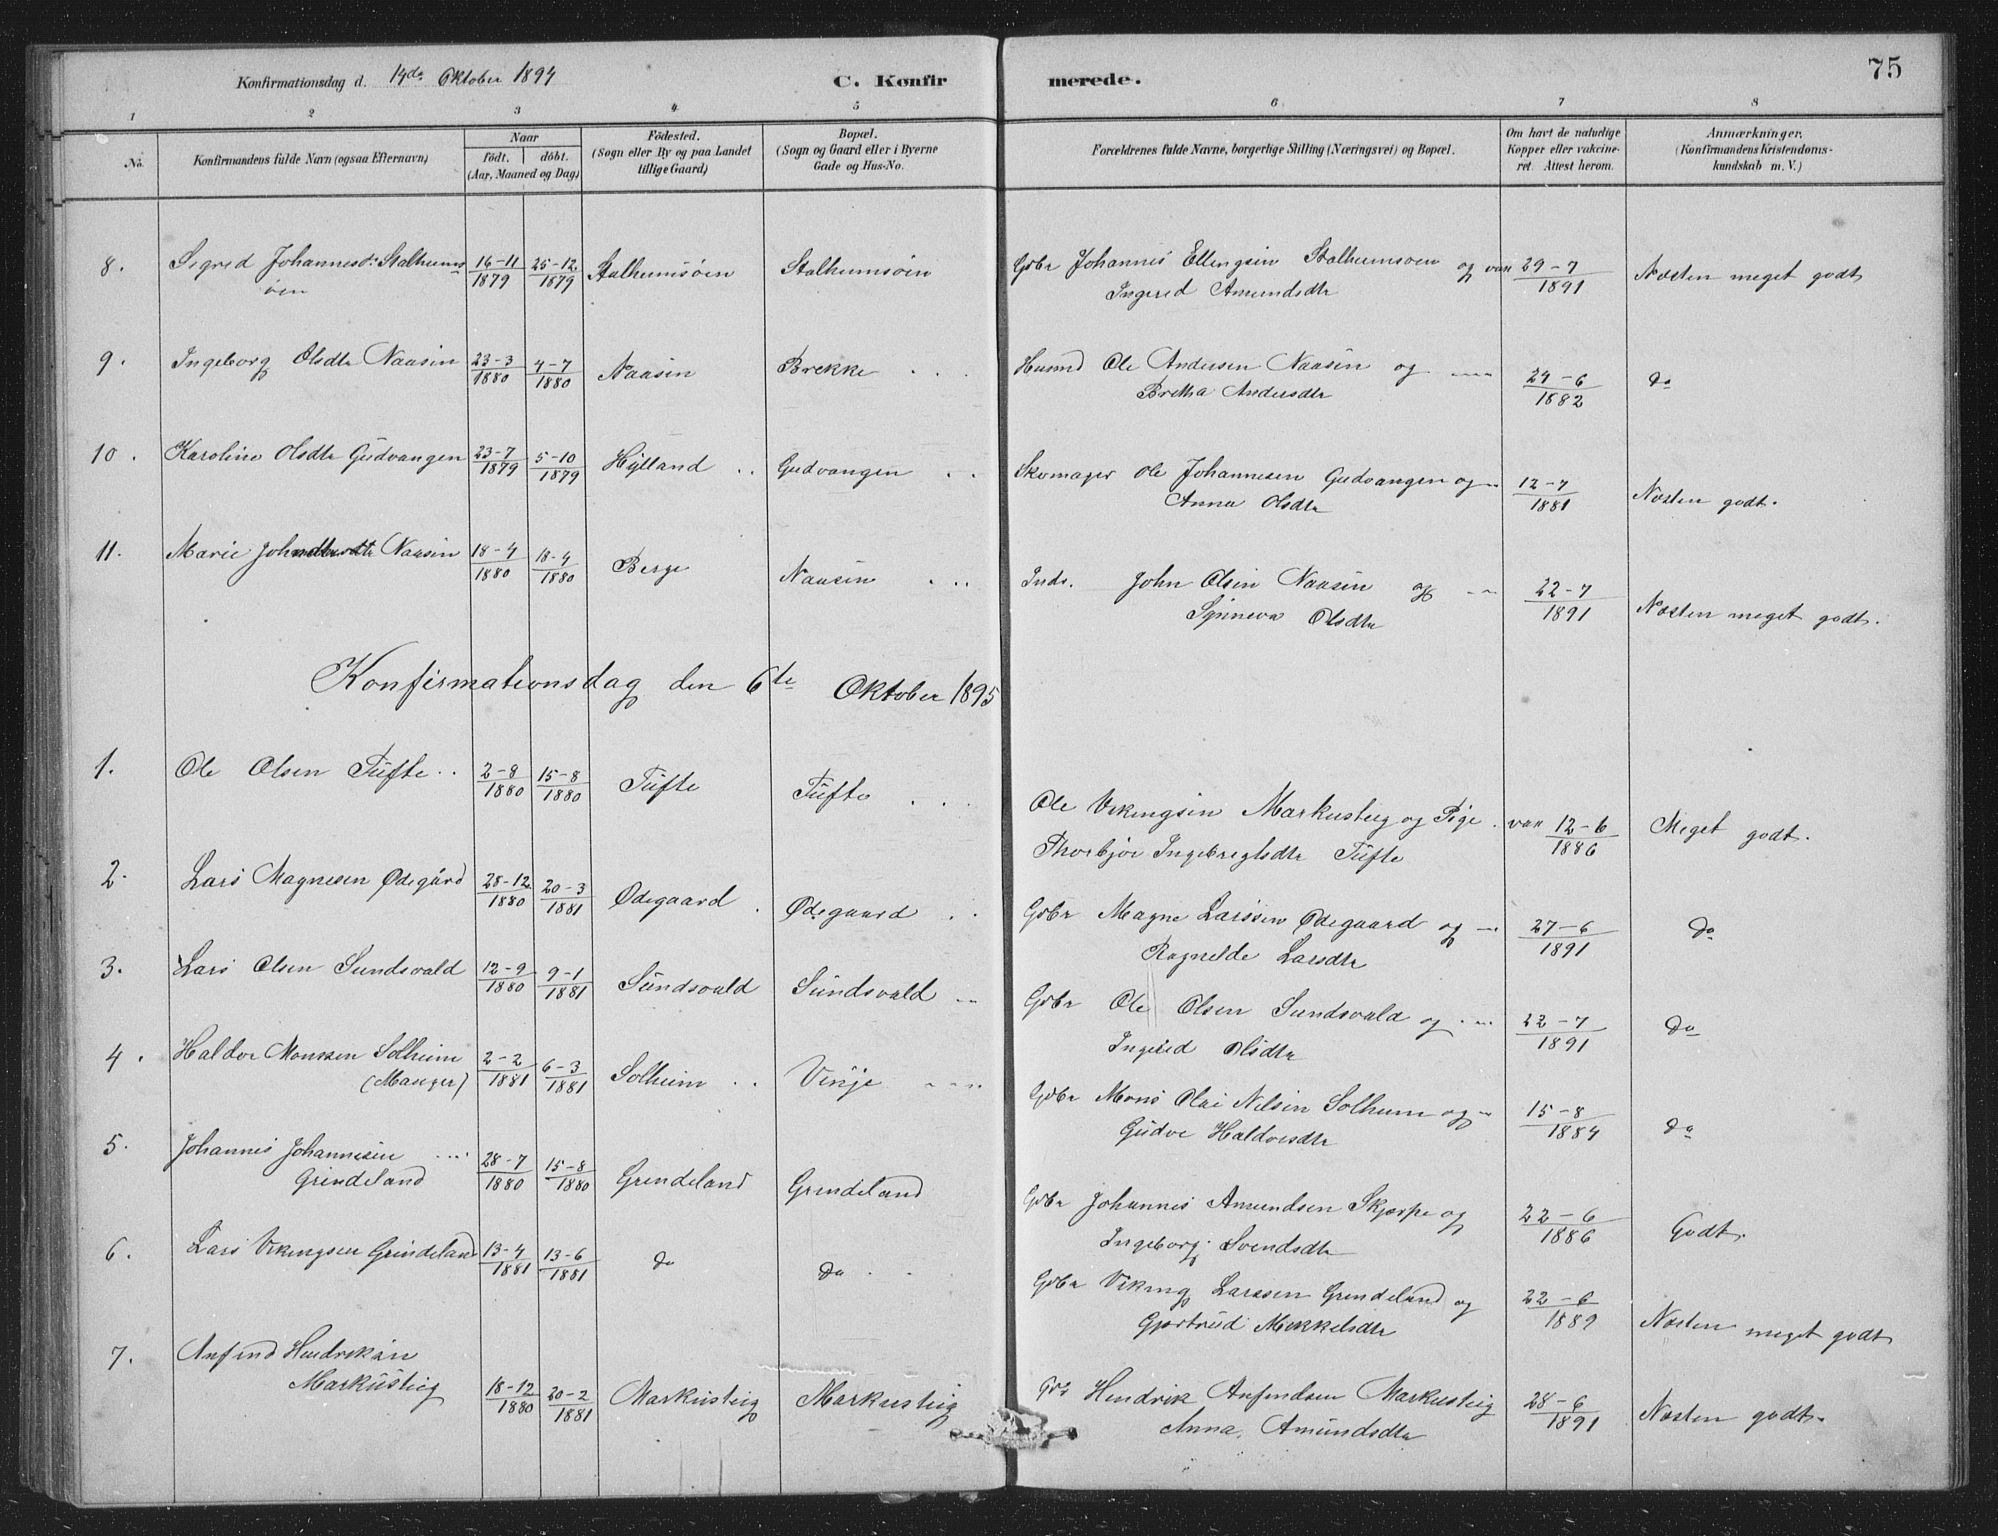 Konfirmationsdag d. 14de Oktober 1894 C. Konfirmerede. 75
1 2 3 4 5 6 7 8
No. Konfirmandens fulde Navn (ogsaa Efternavn) Naar födt. döbt. (Aar, Maaned og Dag) Födested. (Sogn eller By og paa Landet tillige Gaard) Bopæl. (Sogn og Gaard eller i Byerne Gade og Hus-No. Forældrenes fulde Navne, borgerlige Stilling (Næringsvei) og Bopæl. Om havt de naturlige Kopper eller vaccineret. Attest herom. Anmærkninger. (Konfirmandens Kristendomskundskab m. V.)
8. Sigrid Johannesdr Stalheims 16-11 1879 25-12 1879 Stalheimsøen Stalheimsøen Gdbr Johannes Ellingsen Stalheimsøen og vac 29-7 1891 Næsten meget godt
øen Ingerid Amundsdtr
9. Ingeborg Olsdtr Naasen 23-3 1880 4-7 1880 Naasen Brekke Husmd Ole Andersen Naasen og 24-6 1882 do
Britha Andersdtr
10. Karoline Olsdtr Gudvangen 23-7 1879 5-10 1879 Hylland Gudvangen Skomager Ole Johannesen Gudvangen og 12-7 1881 Næsten godt.
Anna Olsdtr
11. Marie Naasen 18-4 1880 18-4 1880 Berge Naasen Inds. John Olsen Naasen og 22-7 1891 Næsten meget godt.
Synneva Olsdtr
Konfirmationsdag den 6te Oktober 1895
1. Ole Olsen Tufte 2-8 1880 15-8 1880 Tufte Tufte Ole Vikingsen Markusteig og Pige vac 12-6 1886 Meget godt.
Thorbjør Ingebregtsdtr Tufte
2. Lars Magnesen Ødegård 28-12 1880 20-3 1881 Ødegaard Ødegaard Gdbr Magne Larssen Ødegaard og 27-6 1891 do
Ragnilde Larsdtr
3. Lars Olsen Sundsvald 12-9 1880 9-1 1881 Sundsvald Sundsvald Gdbr Ole Olsen Sundsvald og 22-7 1891 do
Ingerid Olsdtr
4. Haldor Monssen Solheim 2-2 1881 6-3 1881 Solheim Vinje Gdbr Mons Olai Nilsen Solheim og 15-8 1884 do
(Manger) Gudve Haldorsdtr
5. Johannes Johannesen 28-7 1880 15-8 1880 Grindeland Grindeland Gdbr Johannes Amundsen Skjerpe og 22-6 1886 Godt.
Grindeland Ingeborg Svendsdtr
6. Lars Vikingsen Grindeland 13-4 1881 13-6 1881 do do Gdbr Viking Larssen Grindeland og 22-6 1889 Næsten meget godt
Gjertrud Mikkelsdtr
7. Anfind Hendriksen 18-12 1880 20-2 1881 Markusteig Markusteig Hendrik Anfindsen Markusteig 28-6 1891 Næsten godt.
Markusteig Anna Amundsdtr